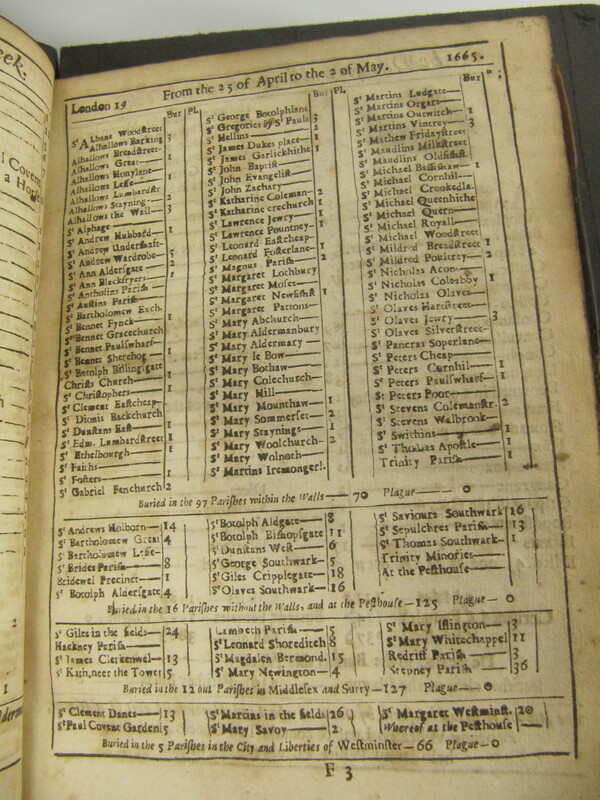 eek.
l Covent
a House
London 19 From the 25 of April to the 2 of May. 1665.
Bur Pl.
Sᵗ Albans Woodstreet
Alhallows Barking 3
Alhallows Breadstreet
Alhallows Great 1
Alhallows Honylane
Alhallows Lesse 1
Alhallows Lumbardstr
Alhallows Stayning 2
Alhallows the Wall 3
Sᵗ Alphage
Sᵗ Andrew Hubbard 1
Sᵗ Andrew Undershaft
Sᵗ Andrew Wardrobe 5
Sᵗ Ann Aldersgate 2
Sᵗ Ann Blackfryers 1
Sᵗ Antholins Parish
Sᵗ Austins Parish
Sᵗ Bartholomew Exch.
Sᵗ Bennet Fynck 1
Sᵗ Bennet Gracechurch
Sᵗ Bennet Paulswharf
Sᵗ Bennet Sherehog
Sᵗ Botolph Billingsgate 1
Christs Church
Sᵗ Christophers 1
Sᵗ Clement Eastcheap
Sᵗ Dionis Backchurch
Sᵗ Dunstans East 1
Sᵗ Edm. Lumbardstreet 1
Sᵗ Ethelbourgh 1
Sᵗ Faiths
Sᵗ Fosters 1
Sᵗ Gabriel Fenchurch 2
Bur Pl.
Sᵗ George Botolphlane
Sᵗ Gregories by Sᵗ Pauls 3
Sᵗ Hellins 2
Sᵗ James Dukes place 1
Sᵗ James Garlickhithe 1
Sᵗ John Baptist
Sᵗ John Evangelist
Sᵗ John Zachary
Sᵗ Katharine Coleman 2
Sᵗ Katharine crechurch 1
Sᵗ Lawrence Jewry 1
Sᵗ Lawrence Pountney 1
Sᵗ Leonard Eastcheap
Sᵗ Leonard Fosterlane 1
Sᵗ Magnus Parish 2
Sᵗ Margaret Lothbury
Sᵗ Margaret Moses
Sᵗ Margaret Newfishst 1
Sᵗ Margaret Pattons
Sᵗ Mary Abchurch
Sᵗ Mary Aldermanbury
Sᵗ Mary Aldermary
Sᵗ Mary le Bow
Sᵗ Mary Bothaw
Sᵗ Mary Colechurch
Sᵗ Mary Hill
Sᵗ Mary Mounthaw 1
Sᵗ Mary Sommerset 2
Sᵗ Mary Staynings 1
Sᵗ Mary Woolchurch 2
Sᵗ Mary Wolnoth
Sᵗ Martins Iremongerl.
Bur
Sᵗ Martins Ludgate
Sᵗ Martins Orgars
Sᵗ Martins Outwitch 1
Sᵗ Martins Vintrey 3
Sᵗ Mathew Fridaystreet
Sᵗ Maudlins Milkstreet
Sᵗ Maudlins Oldfishst.
Sᵗ Michael Bassishaw 1
Sᵗ Michael Cornhil
Sᵗ Michael Crookedla.
Sᵗ Michael Queenhithe
Sᵗ Michael Quern
Sᵗ Michael Royall
Sᵗ Michael Woodstreet
Sᵗ Mildred Breadstreet 1
Sᵗ Mildred Poultrey 2
Sᵗ Nicholas Acon
Sᵗ Nicholas Coleabby 1
Sᵗ Nicholas Olaves
Sᵗ Olaves Hartstreet
Sᵗ Olaves Jewry 3
Sᵗ Olaves Silverstreet
Sᵗ Pancras Soperlane
Sᵗ Peters Cheap
Sᵗ Peters Cornhil 1
Sᵗ Peters Paulswharf 1
St Peters Poor
Sᵗ Stevens Colemanstr. 2
Sᵗ Stevens Walbrook
Sᵗ Swithins 1
Sᵗ Thomas Apostle 1
Trinity Parish
Buried in the 97 Parishes within the Walls — 70 Plague — 0
Sᵗ Andrews Holborn 14
Sᵗ Bartholomew Great 4
Sᵗ Bartholomew Lesse
Sᵗ Brides Parish 8
Bridewel Precinct 1
Sᵗ Botolph Aldersgate 4
Sᵗ Botolph Aldgate 8
Sᵗ Botolph Bishopsgate 11
Sᵗ Dunstans West 6
Sᵗ George Southwark 5
Sᵗ Giles Cripplegate 18
Sᵗ Olaves Southwark 16
Sᵗ Saviours Southwark 26
Sᵗ Sepulchres Parish 13
Sᵗ Thomas Southwark 1
Trinity Minories
At the Pesthouse
Buried in the 16 Parishes without the Walls, and at the Pesthouse — 125 Plague — 0
Sᵗ Giles in the fields 24
Hackney Parish
Sᵗ James Clerkenwel 13
Sᵗ Kath.neer the Tower 5
Lambeth Parish 5
Sᵗ Leonard Shoreditch 8
Sᵗ Magdalen Bermond. 15
Sᵗ Mary Newington 4
Sᵗ Mary Islington 3
Sᵗ Mary Whitechappel 11
Redriff Parish 3
Stepney Parish 36
Buried in the 12 out Parishes in Middlesex and Surry — 127 Plague — 0
Sᵗ Clement Danes 13
Sᵗ Paul Covent Garden 5
Sᵗ Martins in the fields 26
Sᵗ Mary Savoy 2
Sᵗ Margaret Westminst. 20
Whereof at the Pesthouse
Buried in the 5 Parishes in the City and Liberties of Westminster — 66 Plague — 0
F 3